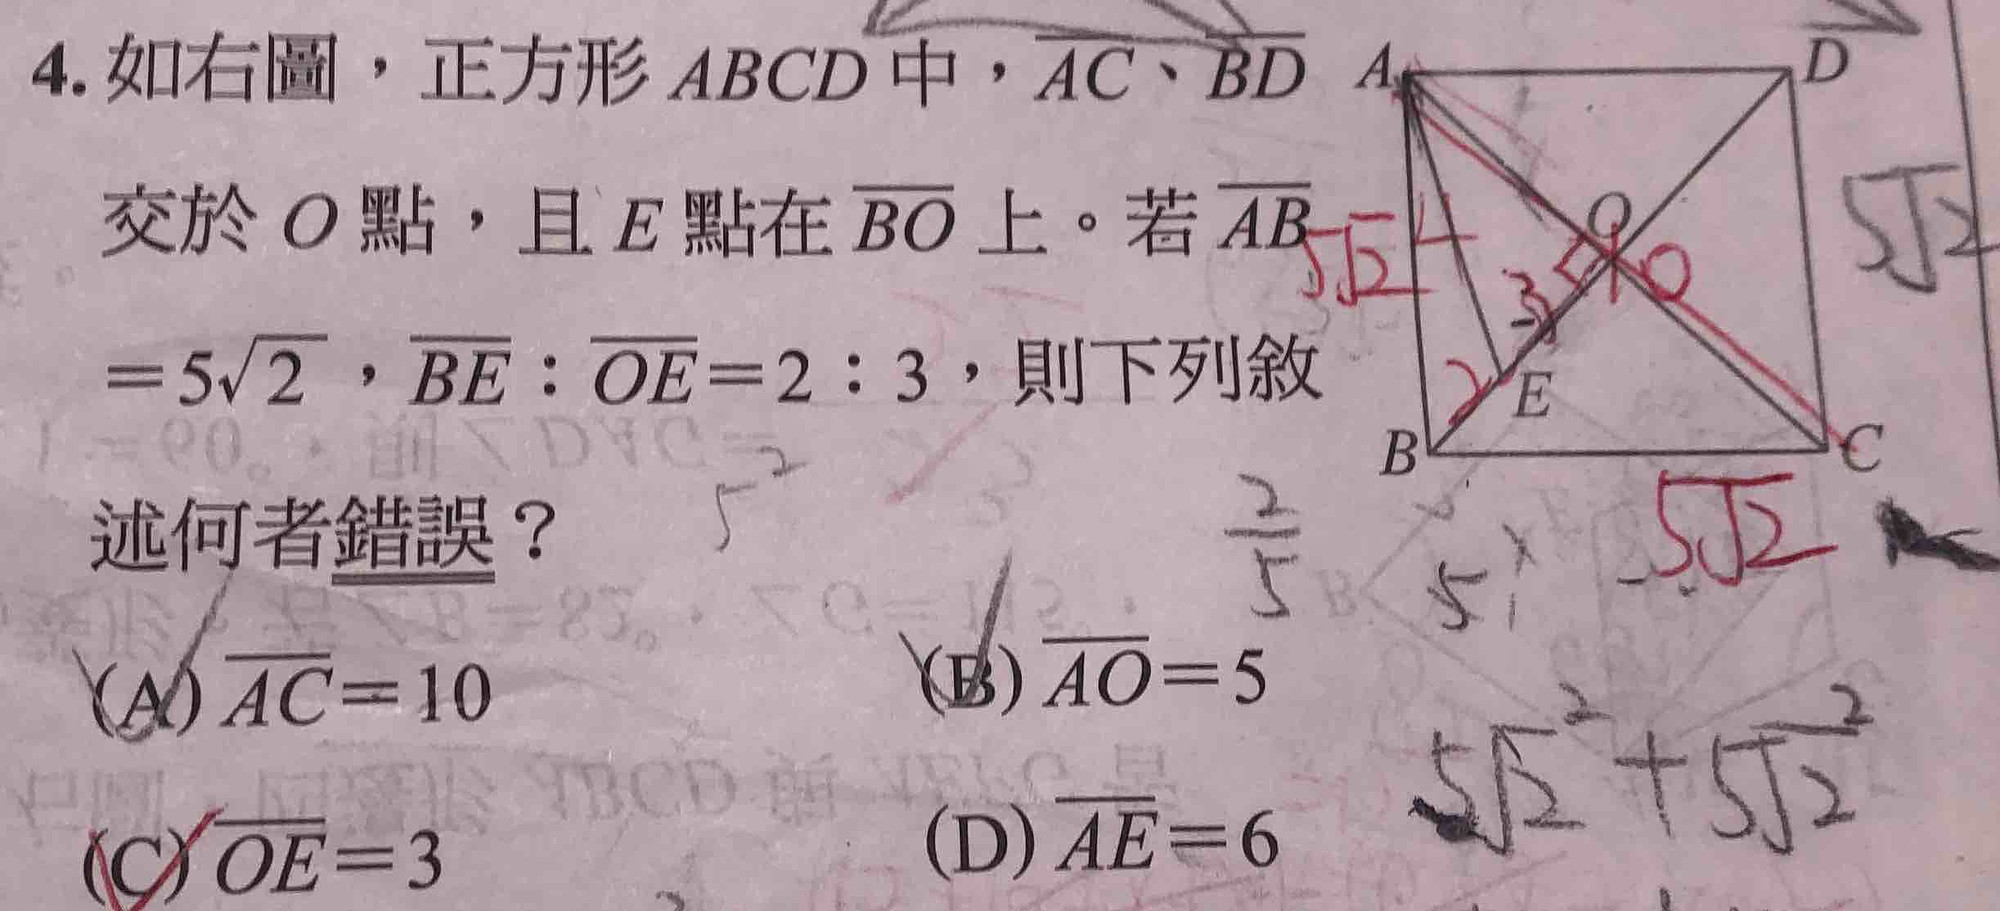 4. 如右圖，正方形 ABCD 中，AC、BD
交於 O 點，且 E 點在 BO 上。若 AB
=5√2，BE：OE=2：3，則下列敘
述何者錯誤？
(A) AC=10
(B) AO=5
(C) OE=3
(D) AE=6
A
D
O
E
B
C
5√2
5√2
5√2
3
2
5²
2
5
5√2² + 5√2²